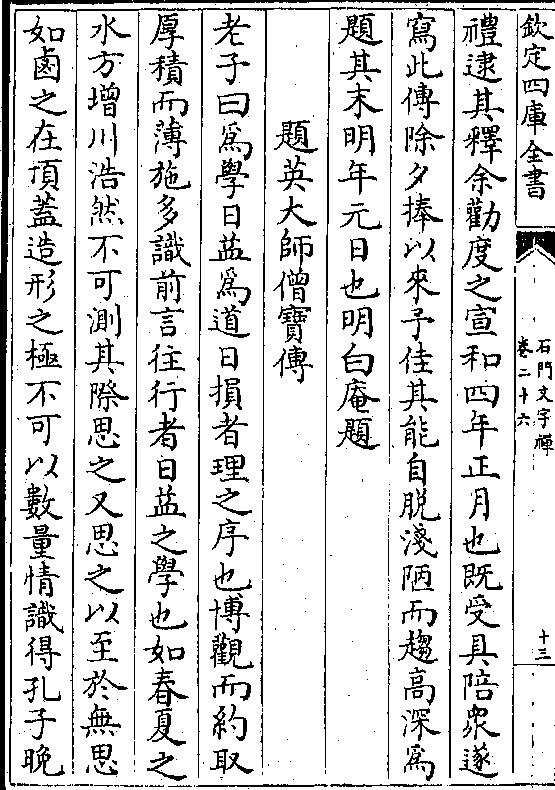 欽定四庫全書
石門文字禪
卷二十六
十三
禮逮其釋余勸度之宣和四年正月也既受具陪衆遂
寫此傳除夕捧以來予佳其能自脱淺陋而趨高深為
題其末明年元日也明白庵題
題英大師僧寶傳
老子曰爲學日益爲道日損者理之序也博觀而約取
厚積而薄施多識前言往行者日益之學也如春夏之
水方增川浩然不可測其際思之又思之以至於無思
如鹵之在頂蓋造形之極不可以數量情識得孔子晚